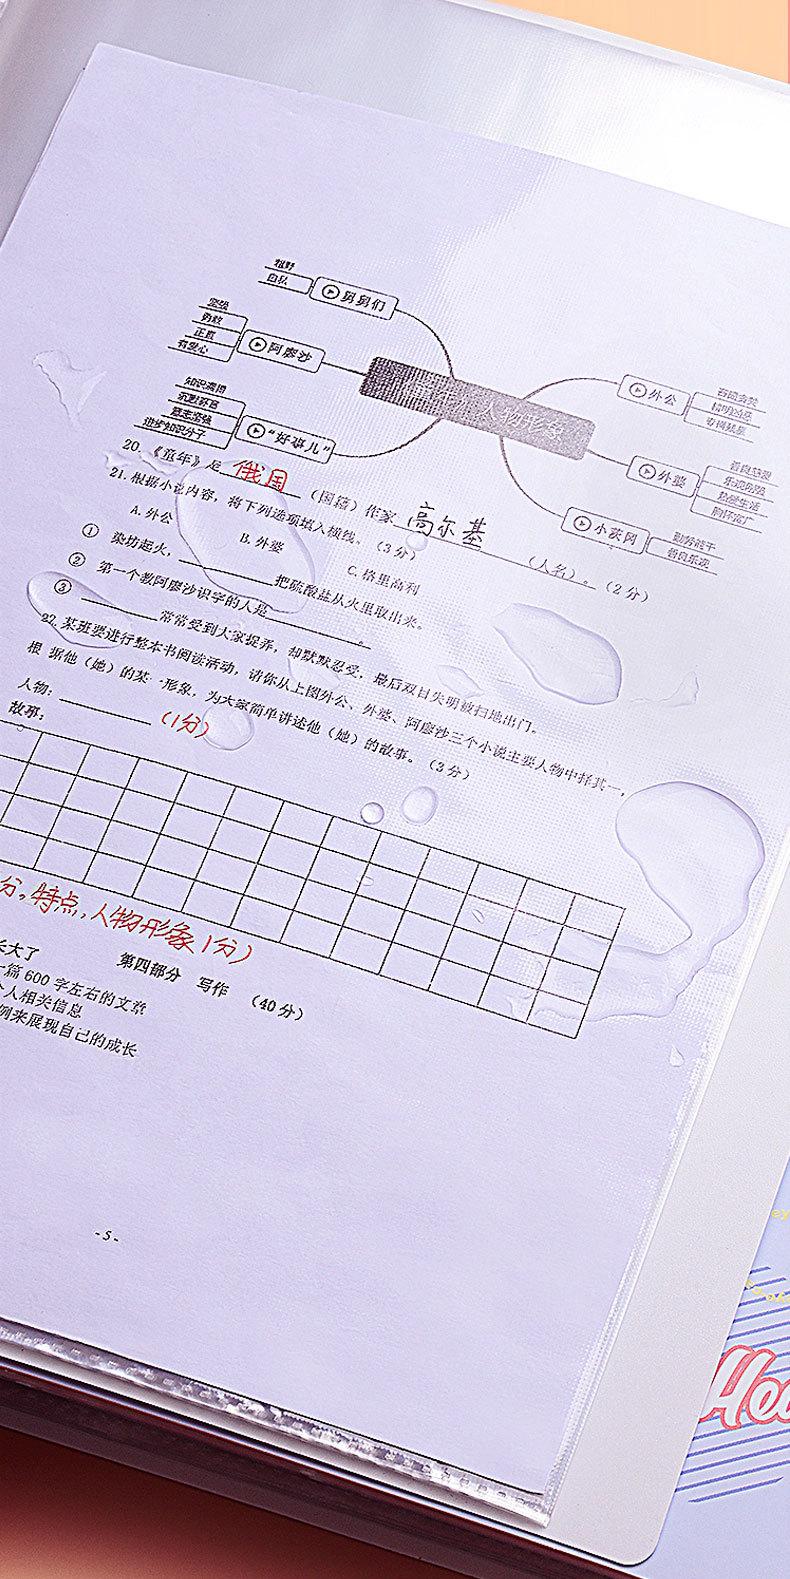 粗野
自私
舅舅们
坚强
勇敢
正直
有爱心
阿廖沙
知识渊博
沉默寡言
意志坚强
进步知识分子
“好事儿”
人物形象
外公
吝啬贪婪
精明凶恶
专横残暴
外婆
善良慈祥
乐观坚强
热爱生活
胸怀宽广
小茨冈
勤劳能干
善良乐观
20.《童年》是 俄国 (国籍)作家 高尔基 (人名)。(2分)
21.根据小说内容,将下列选项填入横线。(3分)
A.外公 B.外婆 C.格里高利
① 染坊起火,________把硫酸盐从火里取出来。
② 第一个教阿廖沙识字的人是________。
③ ________常常受到大家捉弄,却默默忍受,最后双目失明被扫地出门。
22.某班要进行整本书阅读活动,请你从上图外公、外婆、阿廖沙三个小说主要人物中择其一,
根据他(她)的某一形象,为大家简单讲述他(她)的故事。(3分)
人物:________(1分)
故事:
分,特点,人物形象1分)
第四部分 写作 (40分)
长大了
一篇600字左右的文章
个人相关信息
例来展现自己的成长
-5-